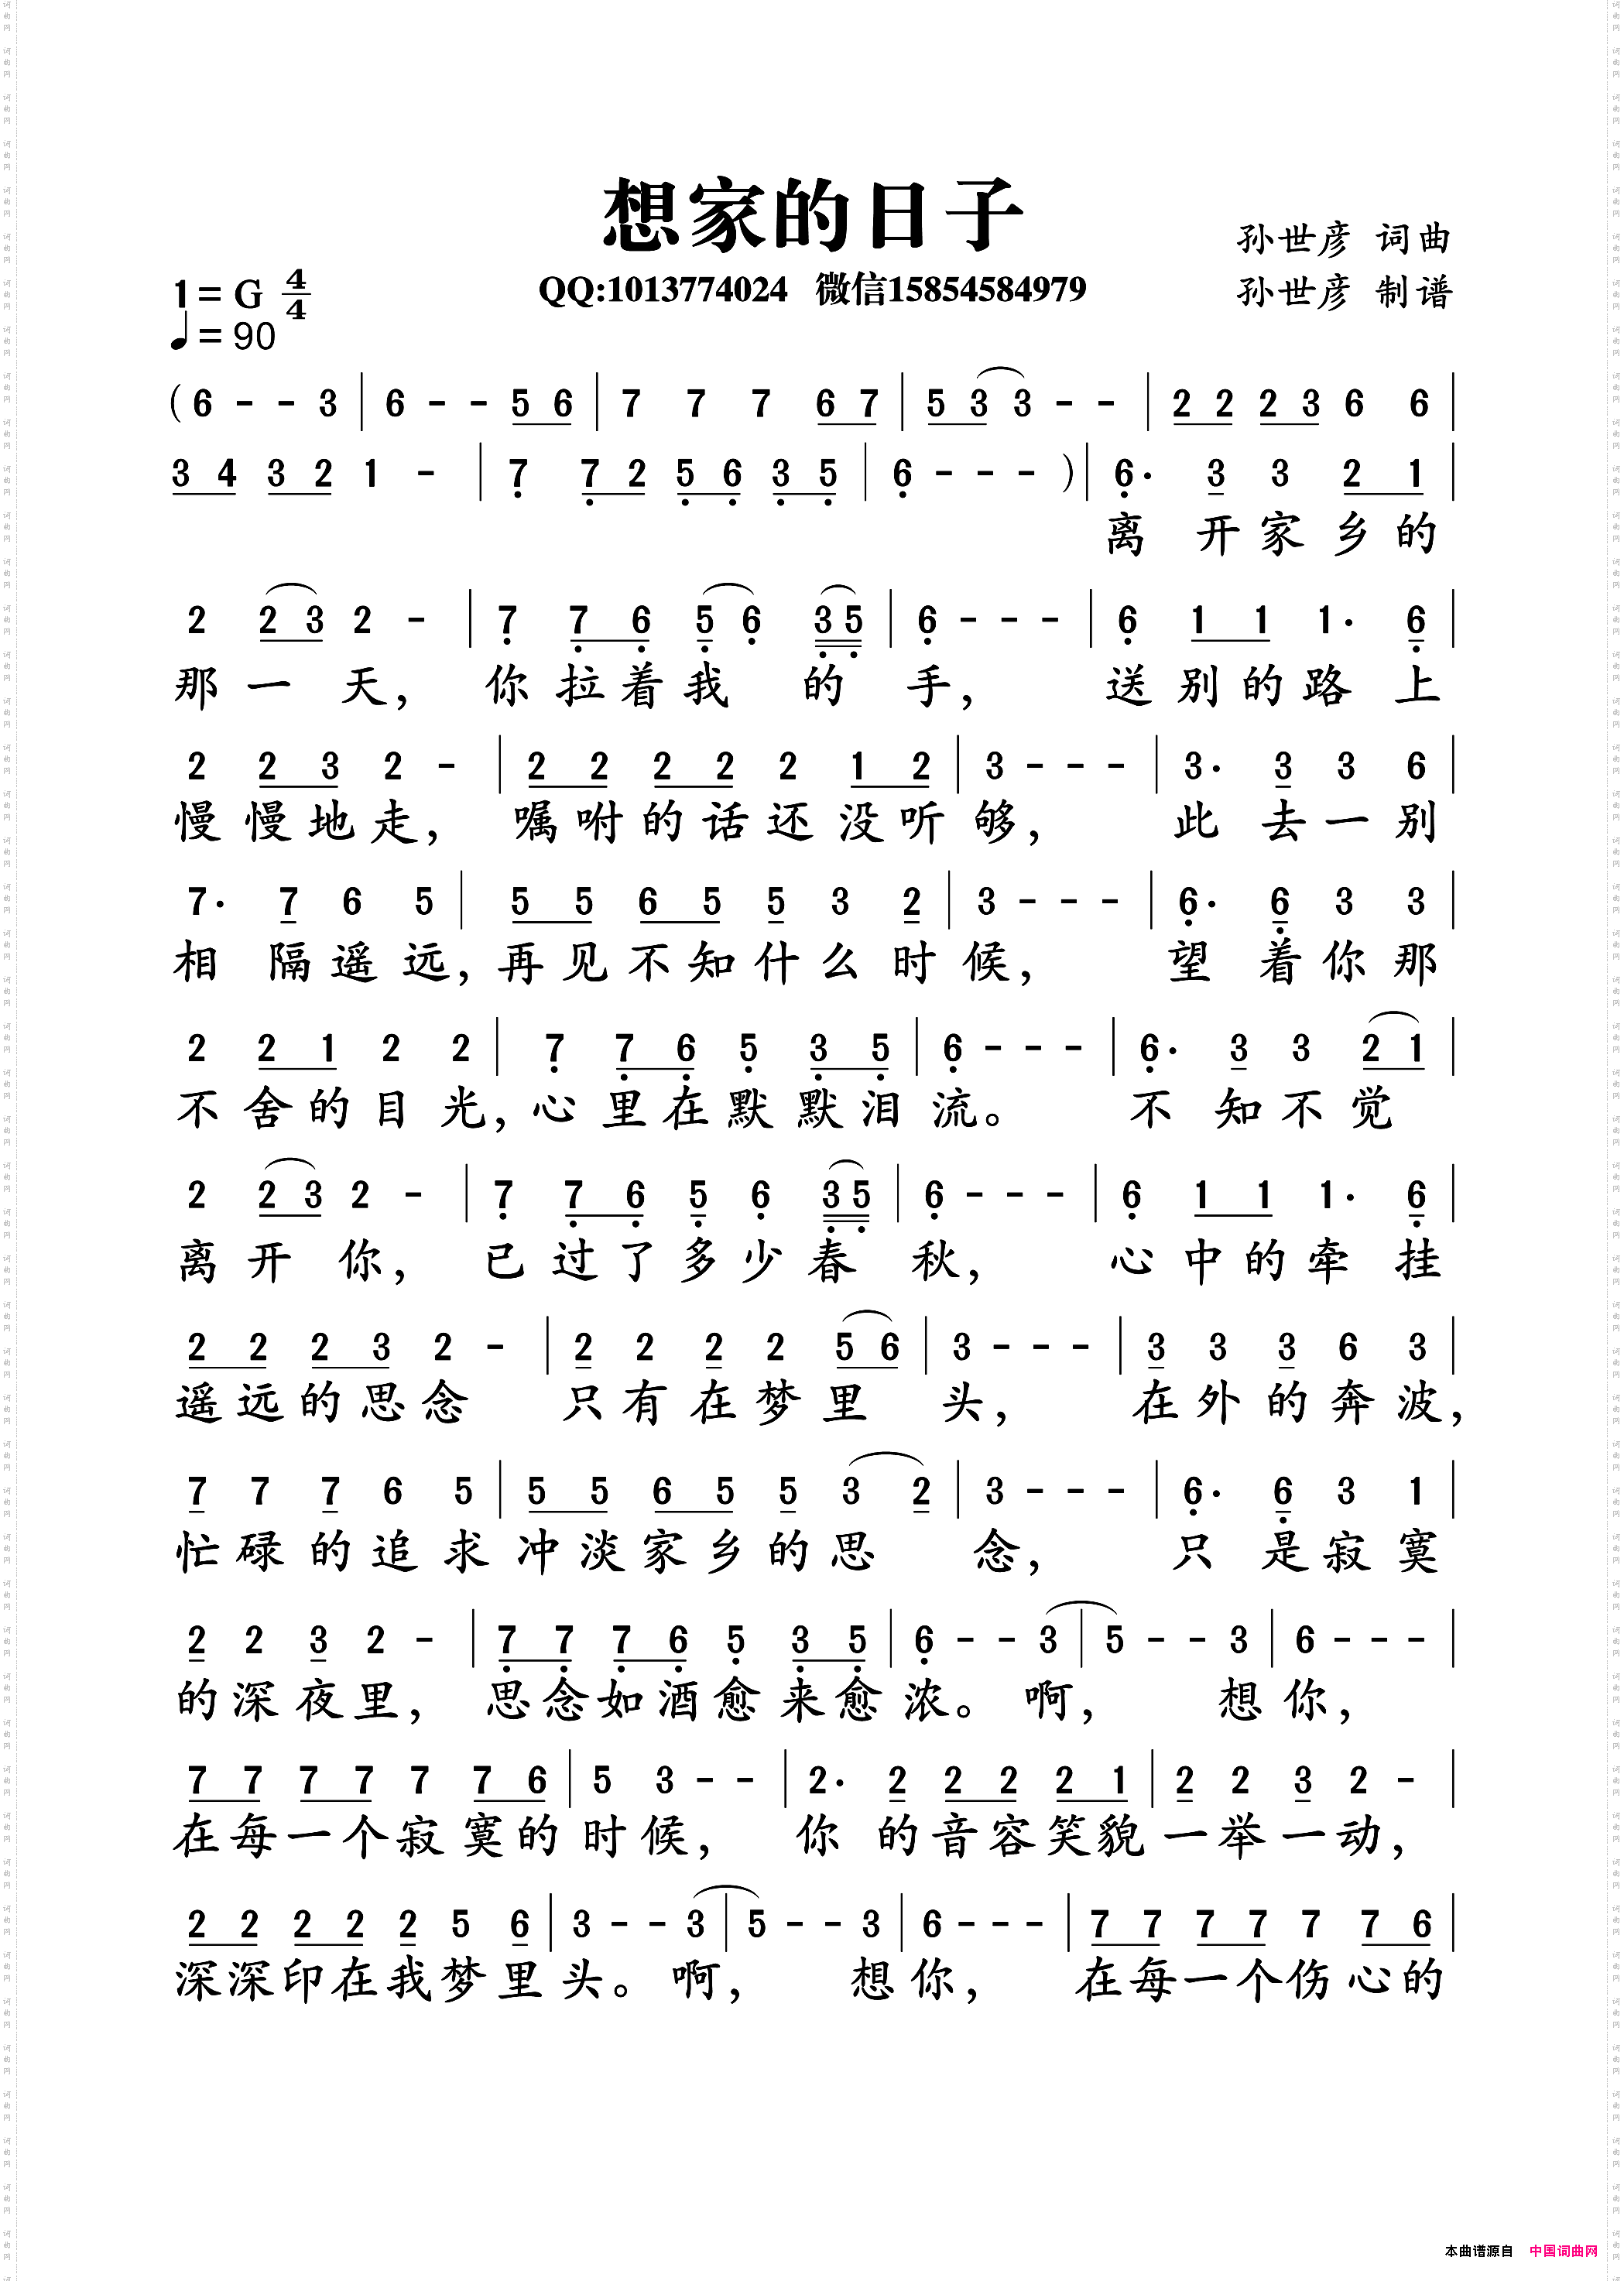 想家的日子
孙世彦 词曲
1=G 4/4
QQ:1013774024 微信15854584979
孙世彦 制谱
♩=90
(6 - - 3 | 6 - - 5 6 | 7 7 7 6 7 | 5 3 3 - - | 2 2 2 3 6 6 |
3 4 3 2 1 - | 7 7 2 5 6 3 5 | 6 - - - ) | 6· 3 3 2 1 |
离开家乡的
2 2 3 2 - | 7 7 6 5 6 3 5 | 6 - - - | 6 1 1 1· 6 |
那一天，你拉着我的手，送别的路上
2 2 3 2 - | 2 2 2 2 2 1 2 | 3 - - - | 3· 3 3 6 |
慢慢地走，嘱咐的话还没听够，此去一别
7· 7 6 5 | 5 5 6 5 5 3 2 | 3 - - - | 6· 6 3 3 |
相隔遥远，再见不知什么时候，望着你那
2 2 1 2 2 | 7 7 6 5 3 5 | 6 - - - | 6· 3 3 2 1 |
不舍的目光，心里在默默泪流。不知不觉
2 2 3 2 - | 7 7 6 5 6 3 5 | 6 - - - | 6 1 1 1· 6 |
离开你，已过了多少春秋，心中的牵挂
2 2 2 3 2 - | 2 2 2 2 5 6 | 3 - - - | 3 3 3 6 3 |
遥远的思念只有在梦里头，在外的奔波，
7 7 7 6 5 | 5 5 6 5 5 3 2 | 3 - - - | 6· 6 3 1 |
忙碌的追求冲淡家乡的思念，只是寂寞
2 2 3 2 - | 7 7 7 6 5 3 5 | 6 - - 3 | 5 - - 3 | 6 - - - |
的深夜里，思念如酒愈来愈浓。啊，想你，
7 7 7 7 7 7 6 | 5 3 - - | 2· 2 2 2 2 1 | 2 2 3 2 - |
在每一个寂寞的时候，你的音容笑貌一举一动，
2 2 2 2 2 5 6 | 3 - - 3 | 5 - - 3 | 6 - - - | 7 7 7 7 7 7 6 |
深深印在我梦里头。啊，想你，在每一个伤心的
本曲谱源自 中国词曲网